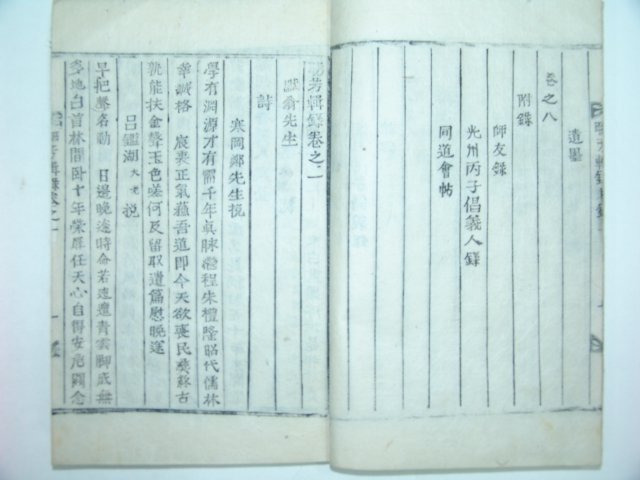 遺墨
卷之八
附錄
師友錄
光州丙子倡義人錄
同道會帖
芳輯錄卷之一
先生
詩
寒岡鄭先生挽
學有淵源才有需千年眞脉洛程朱禮隆昭代儒林
幸誠格宸衷正氣蘓吾道即今天欲喪民憂蘇古
孰能扶金聲玉色嗟何及留取遺篇慰晩途
呂鑑湖大老挽
早把聲名動日邊晩途時命若邅遭青雲脚底無
多地白首林間卧十年榮辱任天心自得安危關念